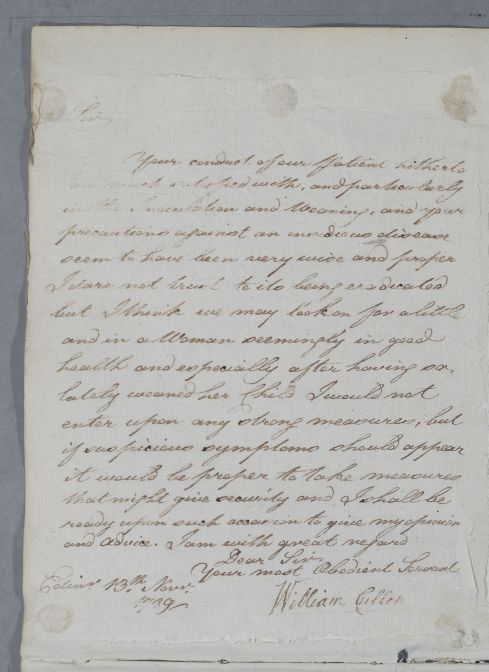 Sir
Your conduct of our Patient hitherto
I am much satisfied with, and particularly
in the Inoculation and Weaning, and your
precautions against an insidious disease
seem to have been very wise and proper
I dare not trust to its being eradicated
but I think we may look on for a little
and in a Woman seemingly in good
health and especially after having so
lately weaned her Child I would not
enter upon any strong measures, but
if suspicious symptoms should appear
it would be proper to take measures
that might give security and I shall be
ready upon such occasion to give my opinion
and advice. I am with great regard
Dear Sir
Your most Obedient Servant
Edinr. 13th. Novr. William Cullen
1789